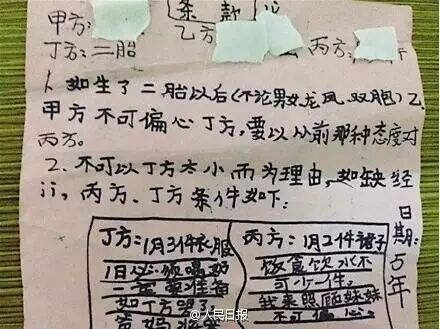 条款
甲方:
乙方
丙方:
丁方:二胎
1、如生了二胎以后(不论男女龙凤、双胞)乙
甲方不可偏心丁方,要以从前那种态度对
丙方。
2、不可以丁方太小而为理由,如缺经
济,丙方、丁方条件如下:
丁方:1月3件衣服
1日必须喝奶
一定要准备
如丁方哭了
爸妈
丙方:1月2件裙子
饭盒饮水不
可少一件,
我来照顾妹妹
不可偏心
日期:5年
@人民日报